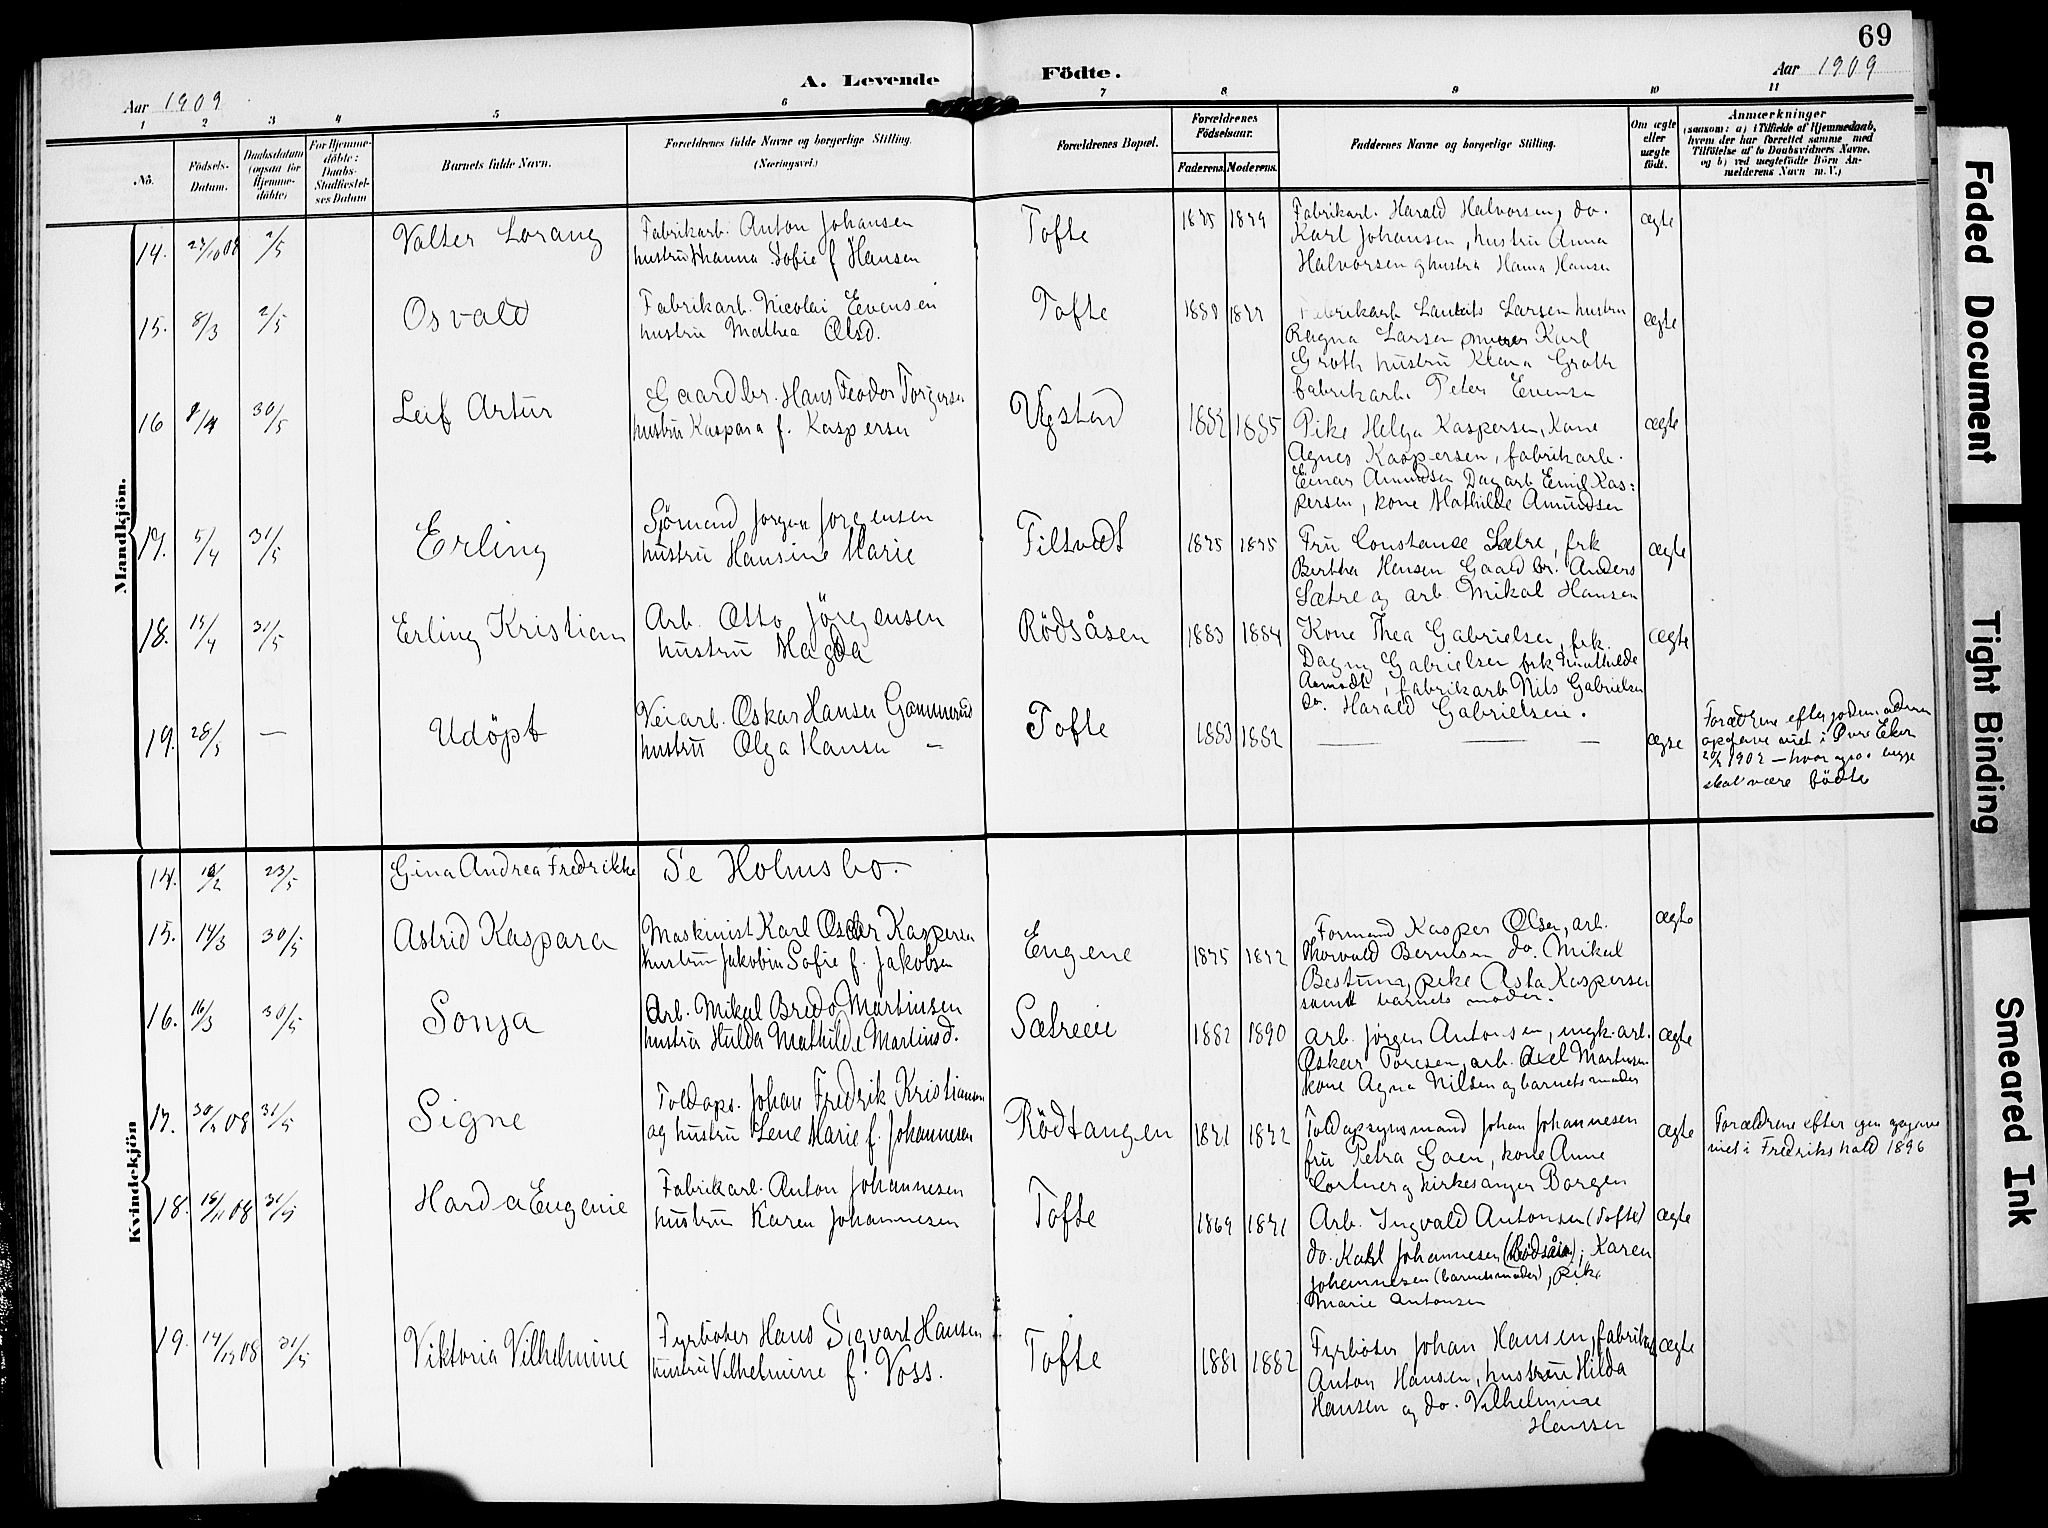 69
A. Levende Födte.
Aar 1909
Aar 1909
1 2 3 4 5 6 7 8 9 10 11
Nô.
Födsels-
Datum.
Daabsdatum
(ogsaa for
Hjemme-
döbte)
For Hjemme-
döbte:
Daabs-
Stadfæstel-
ses Datum
Barnets fulde Navn.
Forældrenes fulde Navne og borgerlige Stilling.
(Næringsvei.)
Forældrenes Bopæl.
Forældrenes
Födselsaar.
Faderens. Moderens.
Faddernes Navne og borgerlige Stilling.
Om ægte
eller
uægte
födt.
Anmærkninger
(saasom: a) i Tilfælde af Hjemmedaab,
hvem der har forrettet samme med
Tilföielse af to Daabsvidners Navne,
og b) ved uægtefödte Börn An-
melderens Navn m. V.)
Mandkjön.
14. 2/5 Valter Lorang
Fabrikarb. Anton Johansen
hustru Hanna Sofie f Hansen
Tofte
Fabrikarb. Harald Halvorsen, do.
Karl Johansen, hustru Anna
Halvorsen og hustru Hanna Hansen
ægte
15. 8/3 2/5 Osvald
Fabrikarb. Nicolai Evensen
hustru Mathea Olsd.
Tofte
Fabrikarb Laurits Larsen hustru
Ragna Larsen Karl
Groth hustru Klara Groth
fabrikarb. Peter Evensen
ægte
16 30/5 Leif Artur
Gaardbr. Hans Feodor Torgersen
hustru Kaspara f. Kaspersen
1885
Pike Helga Kaspersen, Kone
Agnes Kaspersen, fabrikarb.
Einar Amundsen Dagarb Emil Kas=
persen, kone Mathilde Amundsen
ægte
17. 5/4 31/5 Erling
Sjømand Jørgen Jorgensen
hustru Hansine Marie
Filtvedt 1875 1875
Fru Constance Sætre, frk
Bertha Hansen Gaardbr. Anders
Sætre og arb. Mikal Hansen
ægte
18. 15/4 31/5 Erling Kristian
Arb. Otto Jörgensen
hustru Magda
Rödsåsen 1883 1884
Kone Thea Gabrielsen, frk.
Dagny Gabrielsen frk Mathilde
fabrikarb Nils Gabrielsen
do. Harald Gabrielsen.
ægte
19. 28/5 — Udöpt
Veiarb. Oskar Hansen Gommerud
hustru Olga Hansen —
Tofte 1883 1882
— — —
ægte
Forældrene efter
opgave viet i Øvre Eker
1902 — hvor ogsaa begge
skal være födte
Kvindekjön
14. 23/5 Gina Andrea Fredrikke
Se Holmsbo.
15. 14/3 30/5 Astrid Kaspara
Maskinist Karl Oscar Kaspersen
hustru Jakobine Sofie f. Jakobsen
Engene 1875 1872
Formand Kasper Olsen, arb.
Thorvald Berntsen do. Mikal
Bestum, pike Asta Kaspersen
samt barnets moder.
ægte
16. 16/3 30/5 Sonja
Arb. Mikal Bredo Martinsen
hustru Hulda Mathilde Martinsd.
Sætreeie 1882 1890
arb. Jørgen Antonsen, ungk. arb.
Oskar Toresen, arb. Axel Martinsen
kone Agna Nilsen og barnets moder
ægte
17. 31/5 Signe
Toldops. Johan Fredrik Kristiansen
og hustru Lene Marie f. Johannesen
Rödtangen 1871 1872
Toldopsynsmand Johan Johannesen
fru Petra Goen, kone Anne
Cortner og kirkesanger Borgen
ægte
Forældrene efter egen opgave
viet i Fredrikshald 1896
18. 15/11 08 31/5 Harda Eugenie
Fabrikarb. Anton Johannesen
hustru Karen Johannesen
Tofte 1869 1871
Arb. Ingvald Antonsen (Tofte)
do. Karl Johannesen (Rødsåsen), Karen
Johannesen (barnets moder), pike
Marie Antonsen
ægte
19. 14/12 08 31/5 Viktoria Vilhelmine
Fyrböter Hans Sigvart Hansen
hustru Vilhelmine f. Voss.
Tofte 1881 1882
Fyrböter Johan Hansen, fabrikarb
Anton Hansen, hustru Hilda
Hansen og do. Vilhelmine
Hansen
ægte
Faded Document
Tight Binding
Smeared Ink